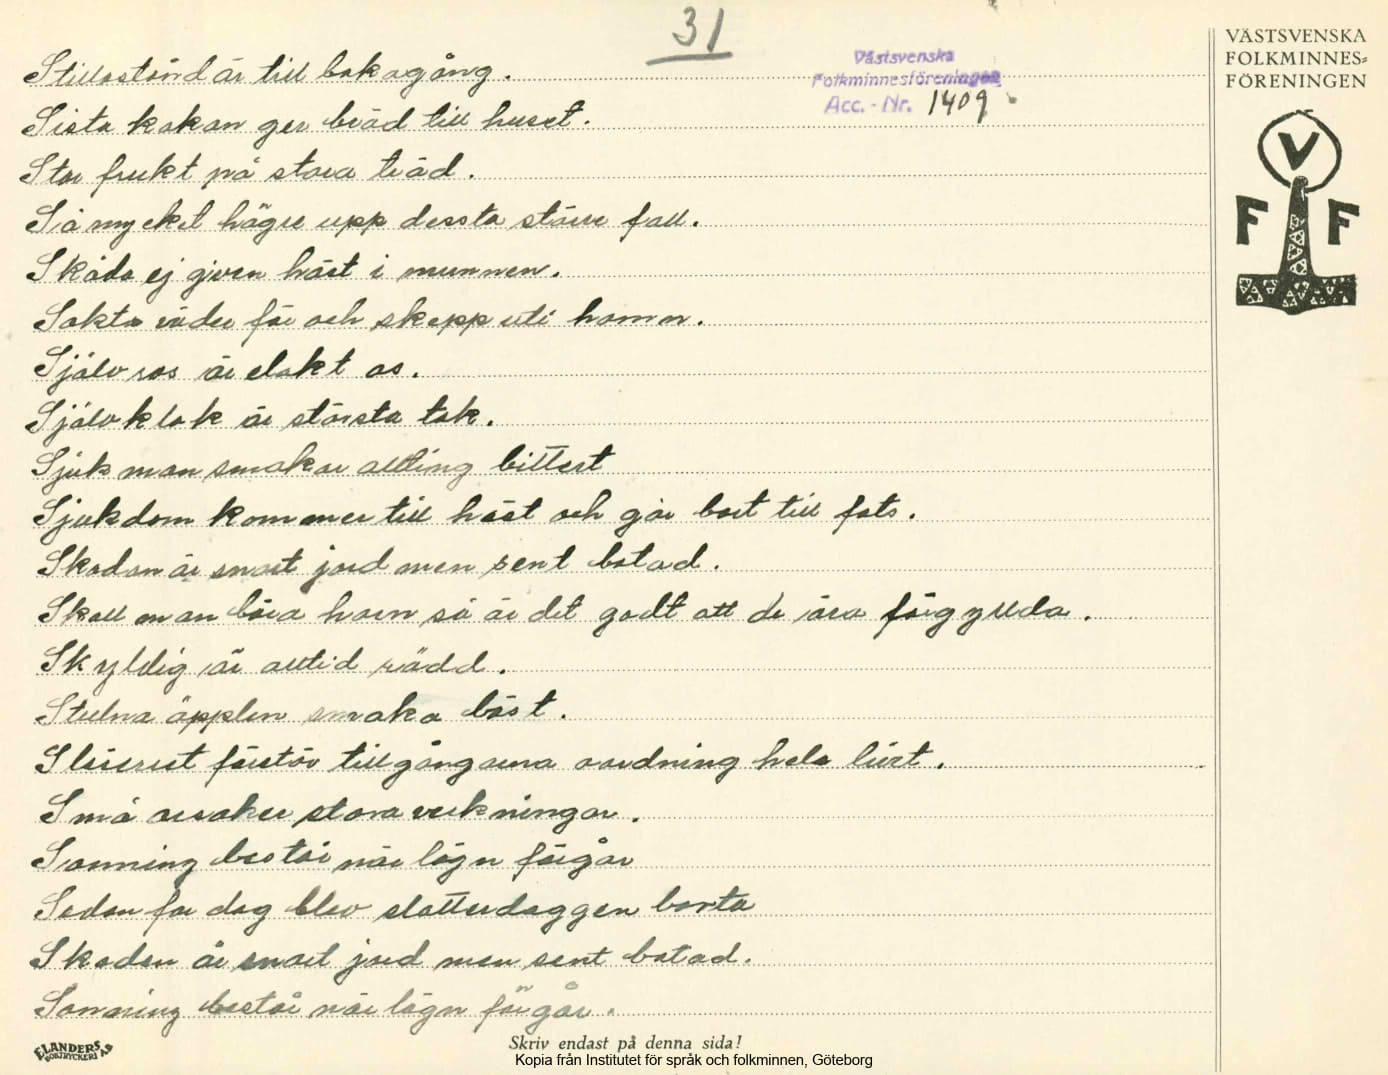 31
Västsvenska
Folkminnesföreningen
Acc. - Nr. 1409
VÄSTSVENSKA
FOLKMINNES=
FÖRENINGEN
V
F F
Stillastånd är till bakagång.
Sista kakan ger bröd till huset.
Stor frukt på stora träd.
Så mycket högre upp dessta större fall.
Skåda ej given häst i munnen.
Sakta väder för och skepp uti hamn.
Själv ros är elakt os.
Själv klok är största tok.
Sjuk man smakar allting bittert
Sjukdom kommer till häst och går bort till fots.
Skadan är snart jord men sent botad.
Skall man bära horn så är det godt att de ära förgyllda.
Skyldig är alltid rädd.
Stulna äpplen smaka bäst.
förstör tillgångarna oordning hela livet.
Små orsaker stora verkningar.
Sanning består när lögn förgår
Sedan for dag blev slotterdaggen borta
Skadan är snart jord men sent botad.
Sanning består när lögn förgår.
ELANDERS
BOKTRYCKERI AB
Skriv endast på denna sida!
Kopia från Institutet för språk och folkminnen, Göteborg